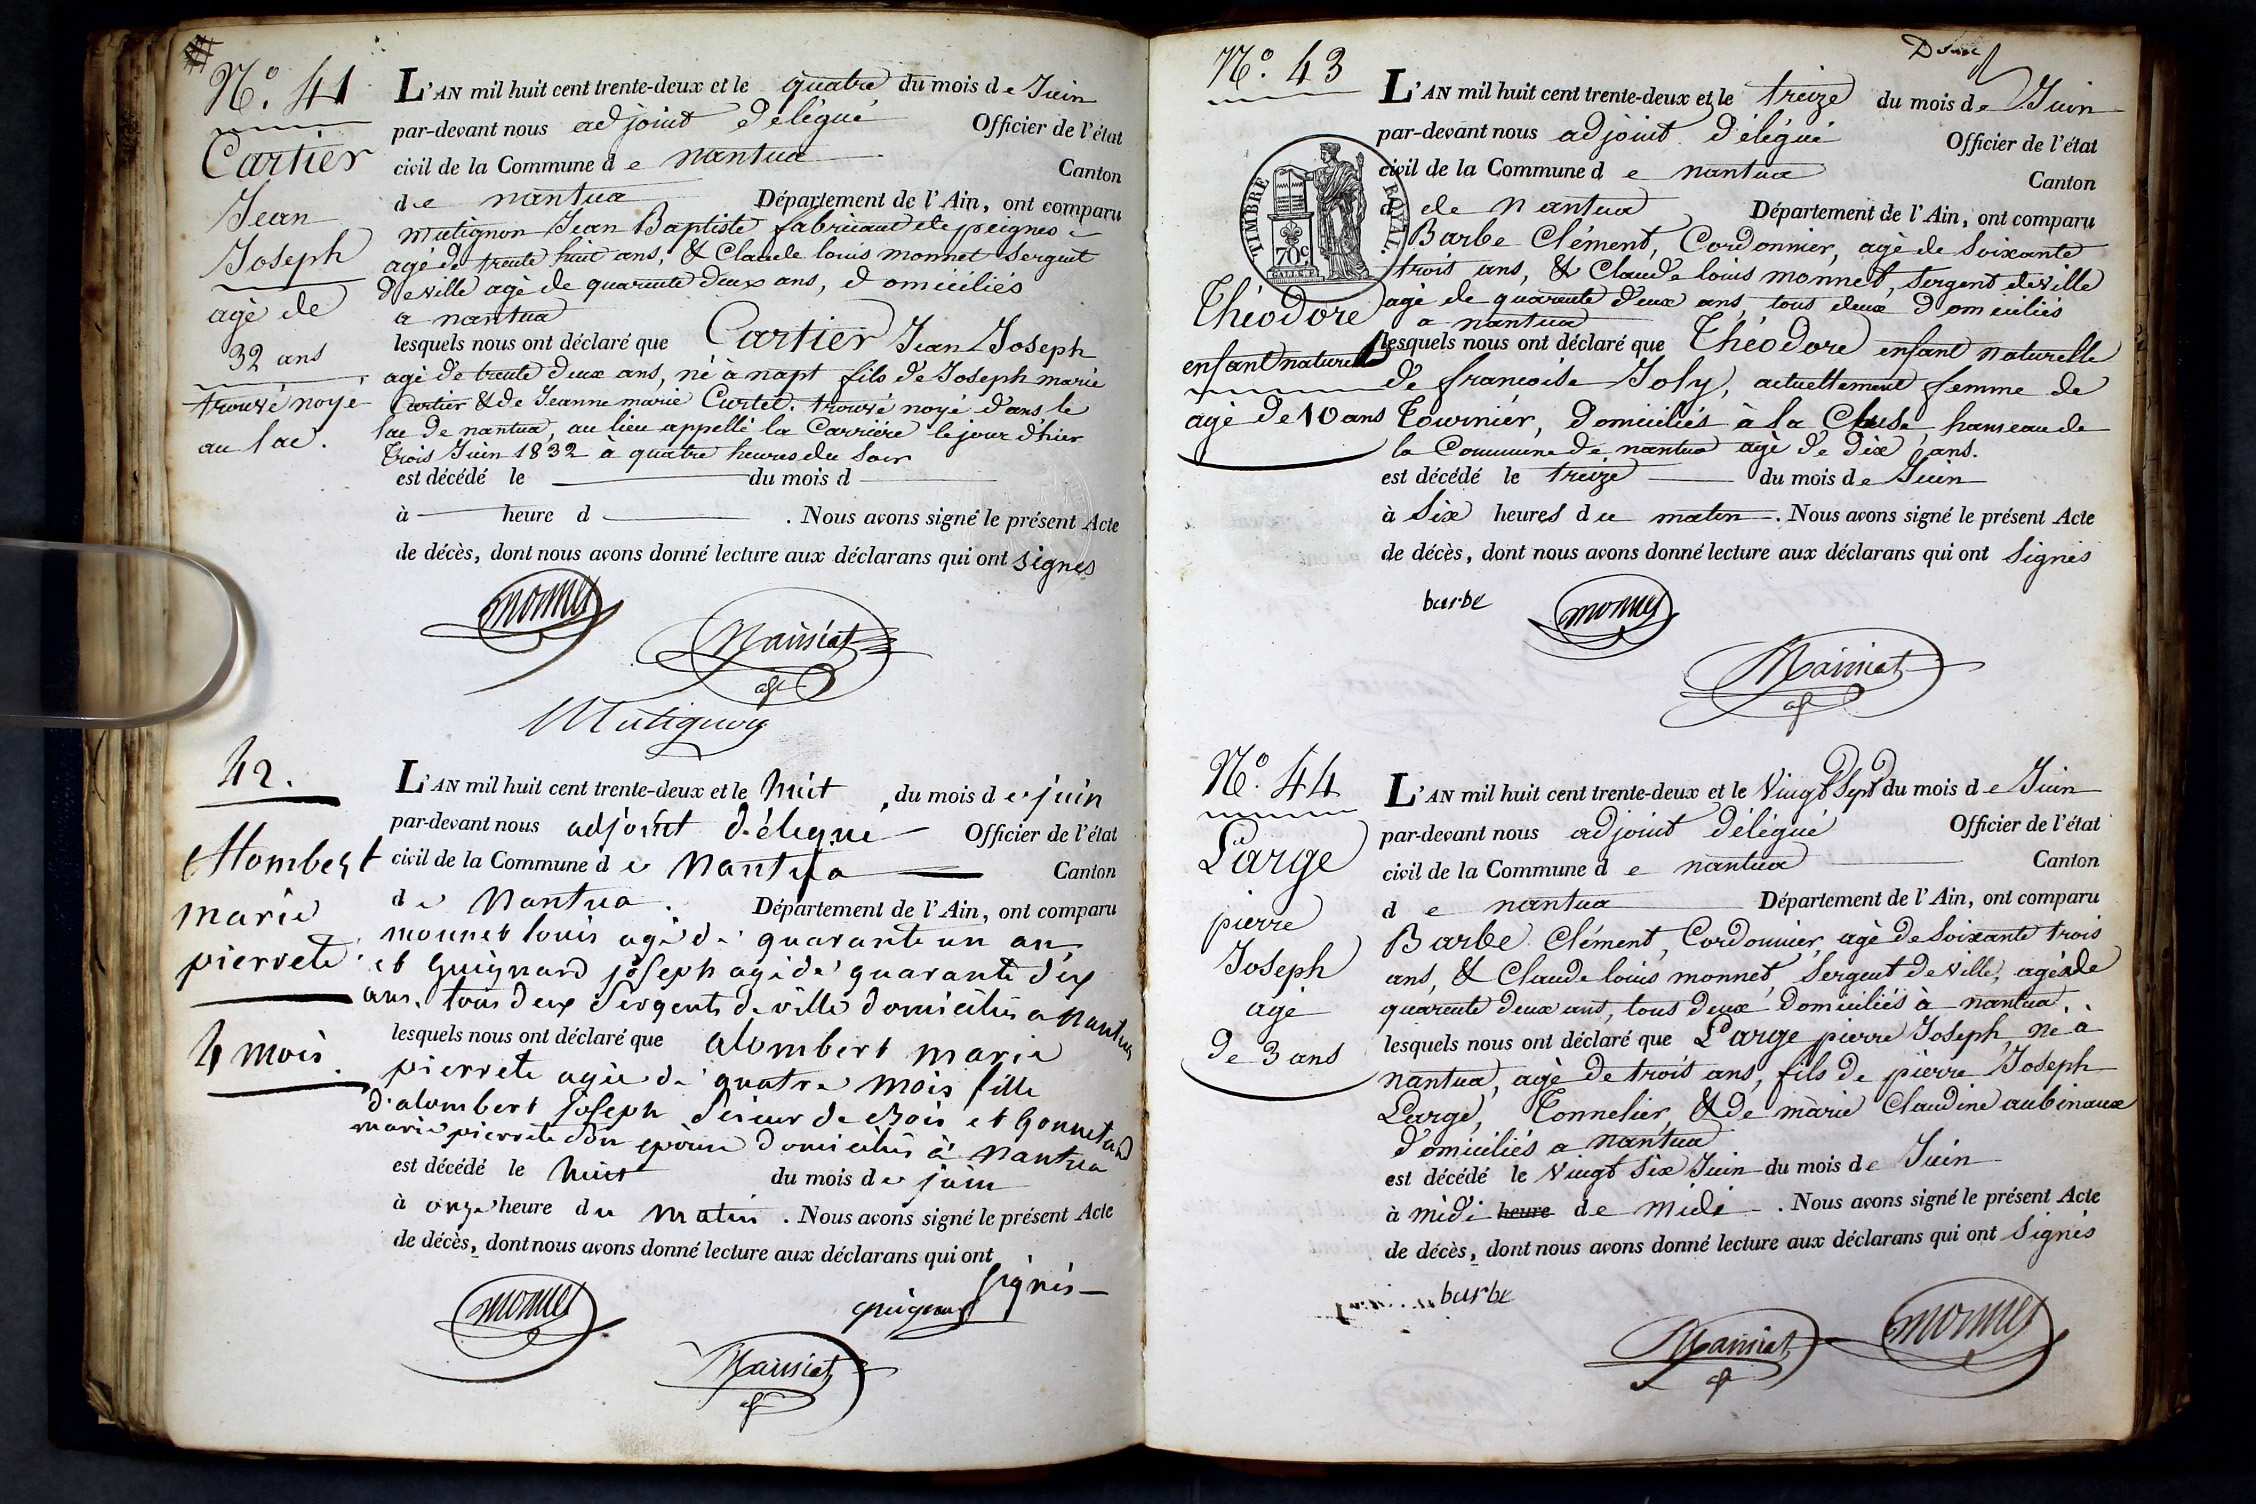 N.º 41
Cartier
Jean
Joseph
agé de
32 ans
trouvé noyé
au lac.
L'AN mil huit cent trente-deux et le quatre du mois de Juin
par-devant nous adjoint délégué Officier de l'état
civil de la Commune de nantua Canton
de nantua Département de l'Ain, ont comparu
Mutignon Jean Baptiste fabricant de peignes
agé de trente huit ans, & Claude louis monnet Sergent
de ville agé de quarente deux ans, domiciliés
a nantua
lesquels nous ont déclaré que Cartier Jean Joseph
agé de trente deux ans, né à napt fils de Joseph marie
Cartier & de Jeanne marie Curtet. trouvé noyé dans le
lac de nantua, au lieu appellé la Carriére le jour d'hier
trois Juin 1832 à quatre heures du Soir
est décédé le du mois d
à heure d . Nous avons signé le présent Acte
de décès, dont nous avons donné lecture aux déclarans qui ont signes
monnet
Mainiat
adj
Mutignon
42.
Alombert
marie
pierrete
4 mois.
L'AN mil huit cent trente-deux et le huit du mois de juin
par-devant nous adjoint délégué Officier de l'état
civil de la Commune de Nantua Canton
de Nantua. Département de l'Ain, ont comparu
monnet louis agé de quarante un an
et Guignard joseph agé de quarante dix
ans. tous deux Sergents de ville domiciliés a Nantua
lesquels nous ont déclaré que alombert marie
pierrete agée de quatre mois fille
d'alombert Joseph Scieur de Bois et
marie pierrete son epouse domiciliés à Nantua
est décédé le huit du mois de juin
à onze heure du matin. Nous avons signé le présent Acte
de décès, dont nous avons donné lecture aux déclarans qui ont
signés
monnet
guignard
Mainiat
adj
N.º 43
TIMBRE ROYAL.
70c
Théodore
enfant naturel
agé de 10 ans
L'AN mil huit cent trente-deux et le treize du mois de Juin
par-devant nous adjoint délégué Officier de l'état
civil de la Commune de nantua Canton
d de nantua Département de l'Ain, ont comparu
Barbe Clément, Cordonnier, agé de Soixante
trois ans, & Claude louis monnet, Sergent de ville
agé de quarente deux ans, tous deux domiciliés
a nantua
lesquels nous ont déclaré que Théodore enfant naturelle
de francoise Joly, actuellement femme de
Tournier, domiciliés à la Cluse, hameau de
la Commune de nantua agé de dix ans.
est décédé le treize du mois de Juin
à Six heures du matin. Nous avons signé le présent Acte
de décès, dont nous avons donné lecture aux déclarans qui ont Signés
barbe
monnet
Mainiat
adj
N.º 44
Large
pierre
Joseph
agé
de 3 ans
L'AN mil huit cent trente-deux et le Vingt Sept du mois de Juin
par-devant nous adjoint délégué Officier de l'état
civil de la Commune de nantua Canton
de nantua Département de l'Ain, ont comparu
Barbe Clément, Cordonnier, agé de Soixante trois
ans, & Claude louis monnet, Sergent de ville, agé de
quarente deux ans, tous deux domiciliés à nantua
lesquels nous ont déclaré que Large pierre Joseph, né à
nantua, agé de trois ans, fils de pierre Joseph
Large, Tonnelier & de marie Claudine aubinaux
domiciliés a nantua
est décédé le Vingt Six Juin du mois de Juin
à midi heure de midi. Nous avons signé le présent Acte
de décès, dont nous avons donné lecture aux déclarans qui ont Signés
barbe
Mainiat
adj
monnet